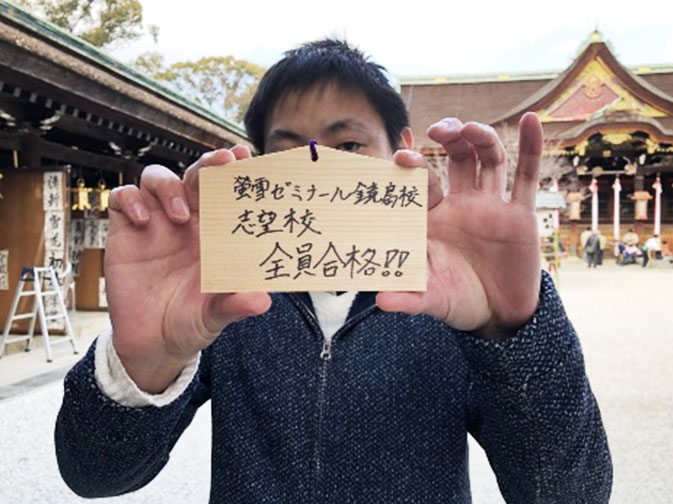 螢雪ゼミナール鏡島校
志望校
全員合格!!